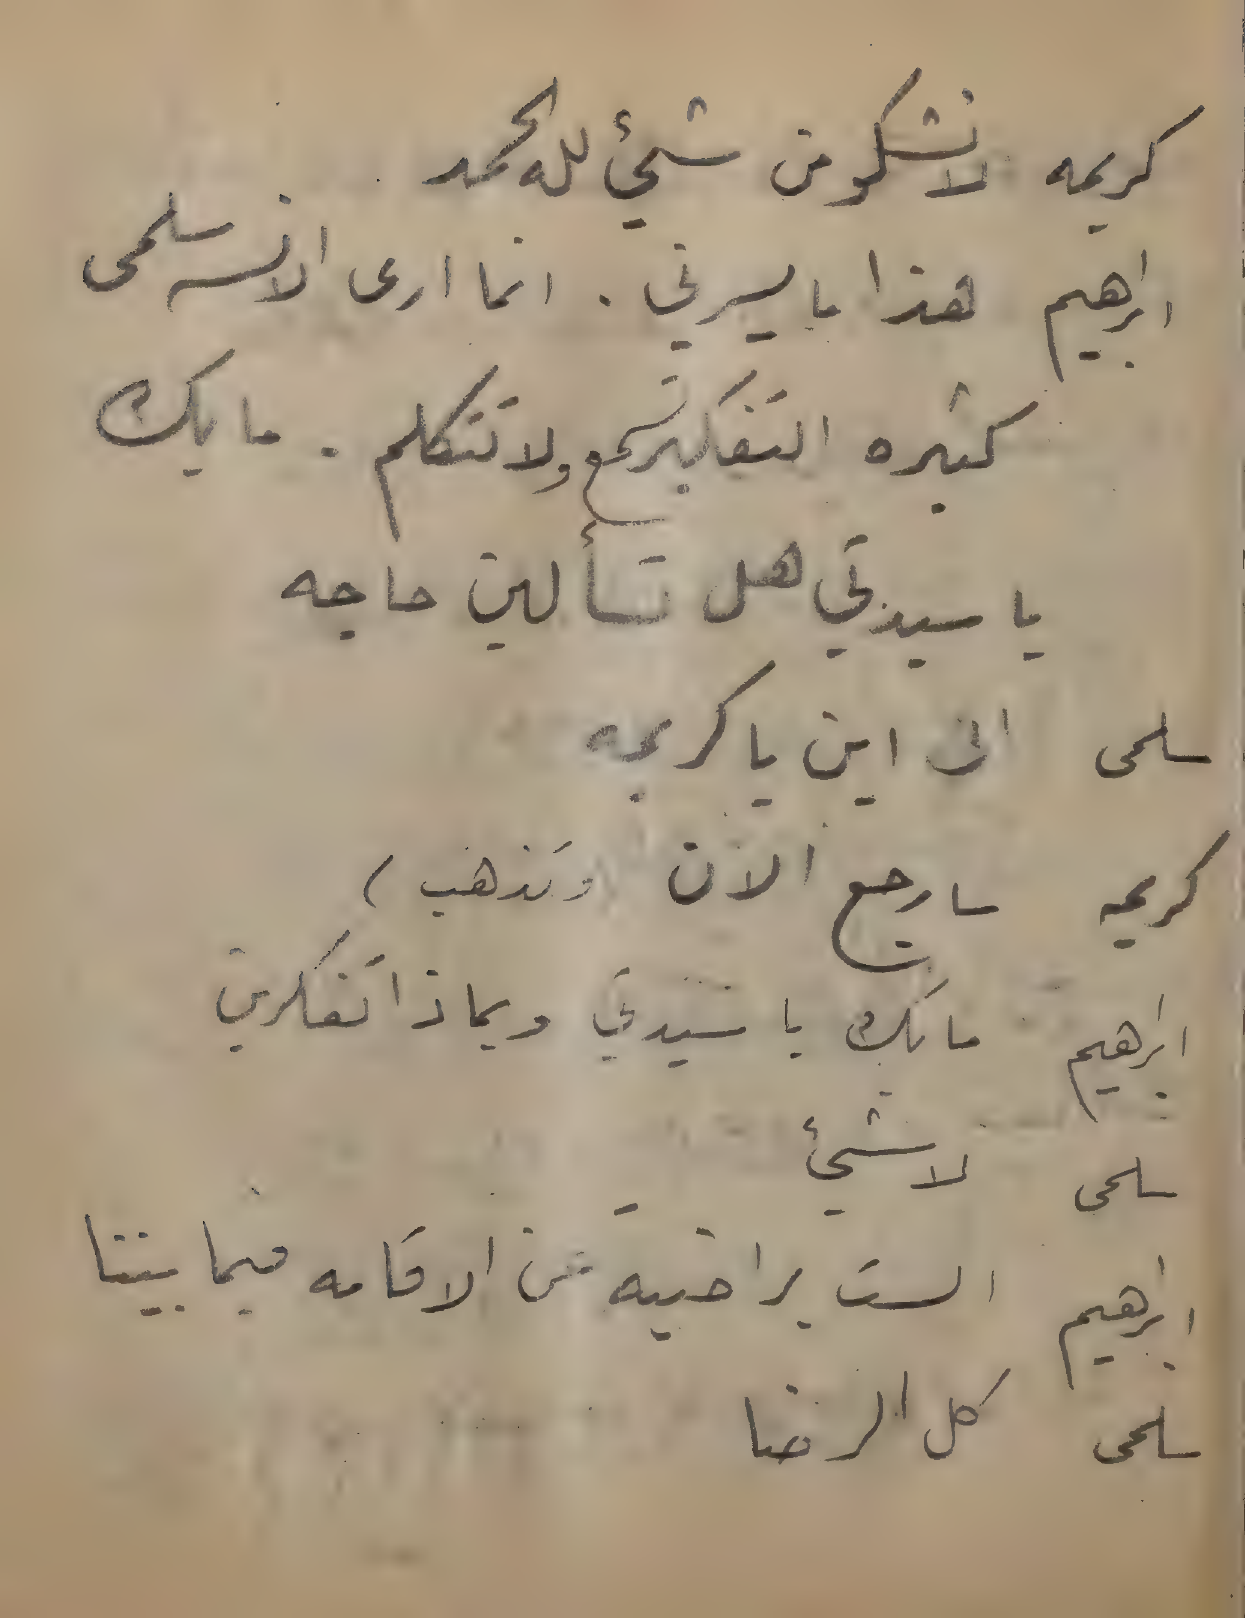 كريمه لا نشكو من شيئ لله الحمد
ابرهيم هذا ما يسرني . انما ارى الانسه سلمى
كثيره التفكير تسمع ولا تتكلم . ما بك
يا سيدتي هل تسألين حاجه
سلمى الى اين يا كريمه
كريمه سارجع الآن (وتذهب)
ابرهيم ما بك يا سيدتي وبماذا تفكرين
سلمى لا شيئ
ابرهيم الست براضية عن الاقامه فيما بيننا
سلمى كل الرضا